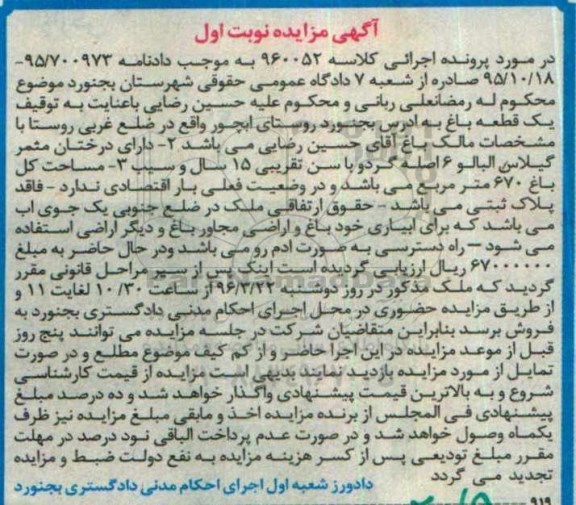 آگهی مزایده نوبت اول
در مورد پرونده اجرائی کلاسه ۹۶۰۰۵۲ به موجب دادنامه ۹۵/۷۰۰۹۷۳-
۹۵/۱۰/۱۸ صادره از شعبه ۷ دادگاه عمومی حقوقی شهرستان بجنورد موضوع
محکوم له رمضانعلی ربانی و محکوم علیه حسین رضایی باعنایت به توقیف
یک قطعه باغ به ادرس بجنورد روستای ابچور واقع در ضلع غربی روستا با
مشخصات مالک باغ آقای حسین رضایی می باشد ۲- دارای درختان مثمر
گیلاس البالو ۶ اصله گردو با سن تقریبی ۱۵ سال و سیب ۳- مساحت کل
باغ ۶۷۰ متر مربع می باشد و در وضعیت فعلی بار اقتصادی ندارد - فاقد
پلاک ثبتی می باشد - حقوق ارتفاقی ملک در ضلع جنوبی یک جوی اب
می باشد که برای ابیاری خود باغ و اراضی مجاور باغ و دیگر اراضی استفاده
می شود - راه دسترسی به صورت ادم رو می باشد ودر حال حاضر به مبلغ
۶۷۰۰۰۰۰۰ ریال ارزیابی گردیده است اینک پس از سیر مراحل قانونی مقرر
گردید که ملک مذکور در روز دوشنبه ۹۶/۳/۲۲ از ساعت ۱۰/۳۰ لغایت ۱۱ و
از طریق مزایده حضوری در محل اجرای احکام مدنی دادگستری بجنورد به
فروش برسد بنابراین متقاضیان شرکت در جلسه مزایده می توانند پنج روز
قبل از موعد مزایده در این اجرا حاضر و از کم کیف موضوع مطلع و در صورت
تمایل از مورد مزایده بازدید نمایند بدیهی است مزایده از قیمت کارشناسی
شروع و به بالاترین قیمت پیشنهادی واگذار خواهد شد و ده درصد مبلغ
پیشنهادی فی المجلس از برنده مزایده اخذ و مابقی مبلغ مزایده نیز ظرف
یکماه وصول خواهد شد و در صورت عدم پرداخت الباقی نود درصد در مهلت
مقرر مبلغ تودیعی پس از کسر هزینه مزایده به نفع دولت ضبط و مزایده
تجدید می گردد
دادورز شعبه اول اجرای احکام مدنی دادگستری بجنورد
۹۱۹